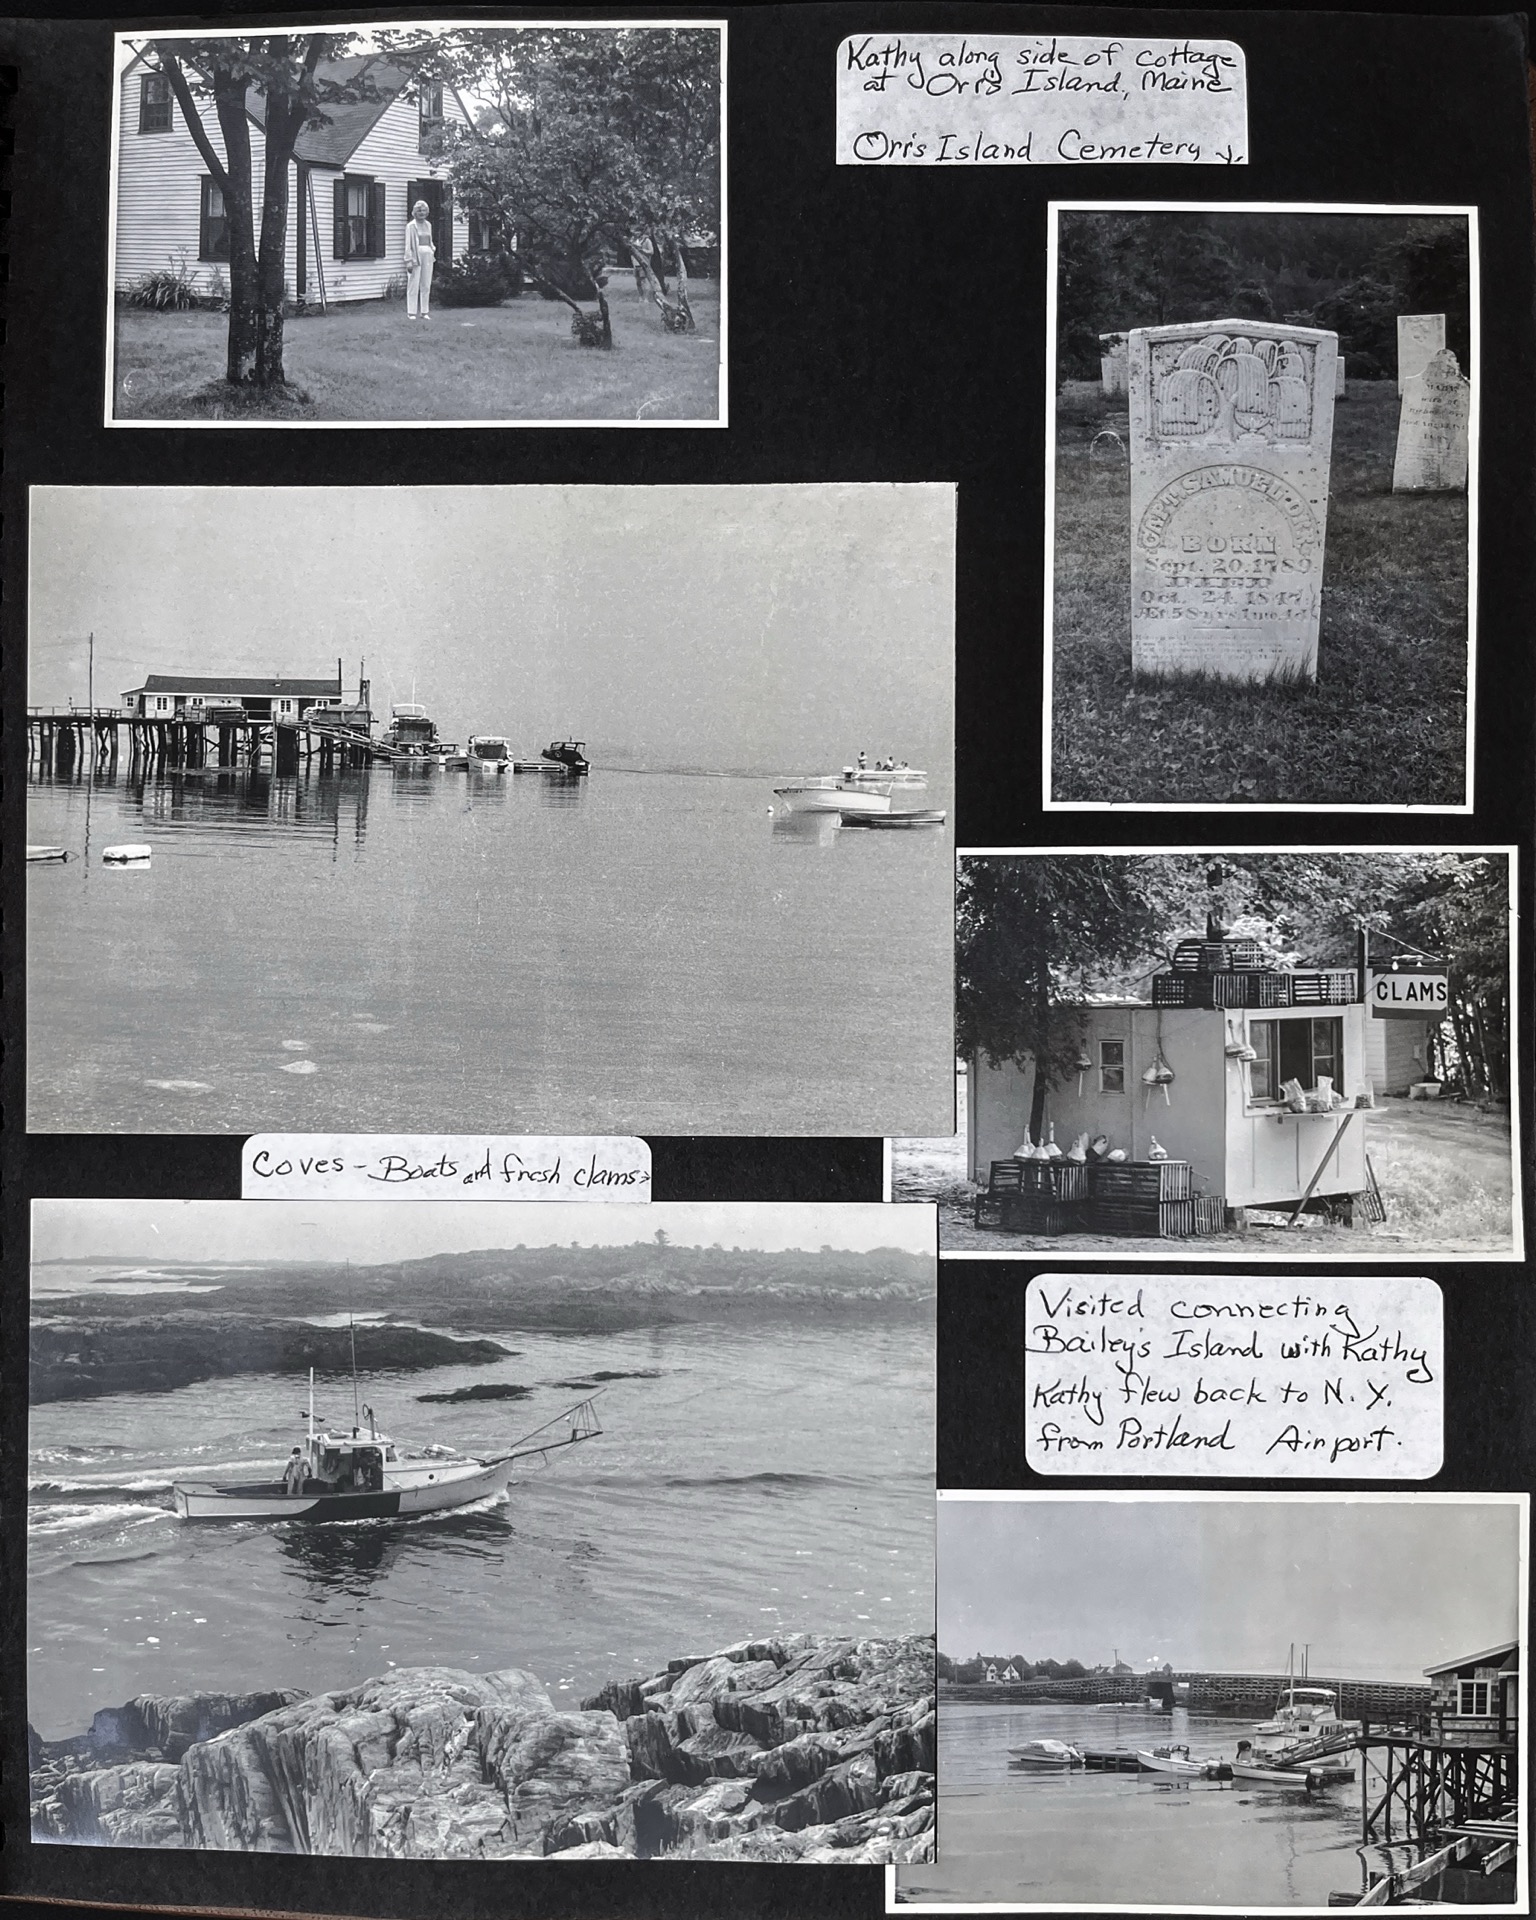 Kathy along side of cottage
at Orr's Island, Maine
Orr's Island Cemetery
CAPT. SAMUEL ORR
BORN
Sept. 20. 1789.
DIED
Oct. 24. 1847.
Æt. 58 yrs 1 mo. 4 d's
wife of
CLAMS
Coves - Boats and fresh clams
Visited connecting
Bailey's Island with Kathy
Kathy flew back to N.Y.
from Portland Airport.